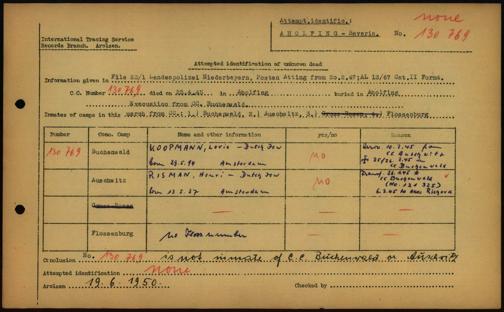 Attempt.identific.: none
International Tracing Service
Records Branch. Arolsen.
AHOLFING - Bavaria. No. 130 769
Attempted identification of unknown dead
Information given in File 22/1 Landespolizei Niederbayern, Posten Atting from 20.2.47; AL 12/67 Cat.II Forms.
C.C. Number 130769 died on in Aholfing buried in Aholfing
Evacuation from CC. Buchenwald.
Inmates of camps in this 1.) Buchenwald, 2.) Auschwitz, 3.) Gross Rosen, 4.) Flossenburg
Number Conc. Camp Name and other information yes/no Reason
130769 Buchenwald KOOPMANN, Louis - Dutch Jew
born 29.5.90 Amsterdam
NO
Auschwitz RISMAN, Henri - Dutch Jew
born 12.5.27 Amsterdam
NO
Gross Rosen
Flossenburg no Floss number
Conclusion No. 130 769 is not inmate of C.C. Buchenwald or Auschwitz
Attempted identification none
Arolsen 19. 6. 1950. Checked by